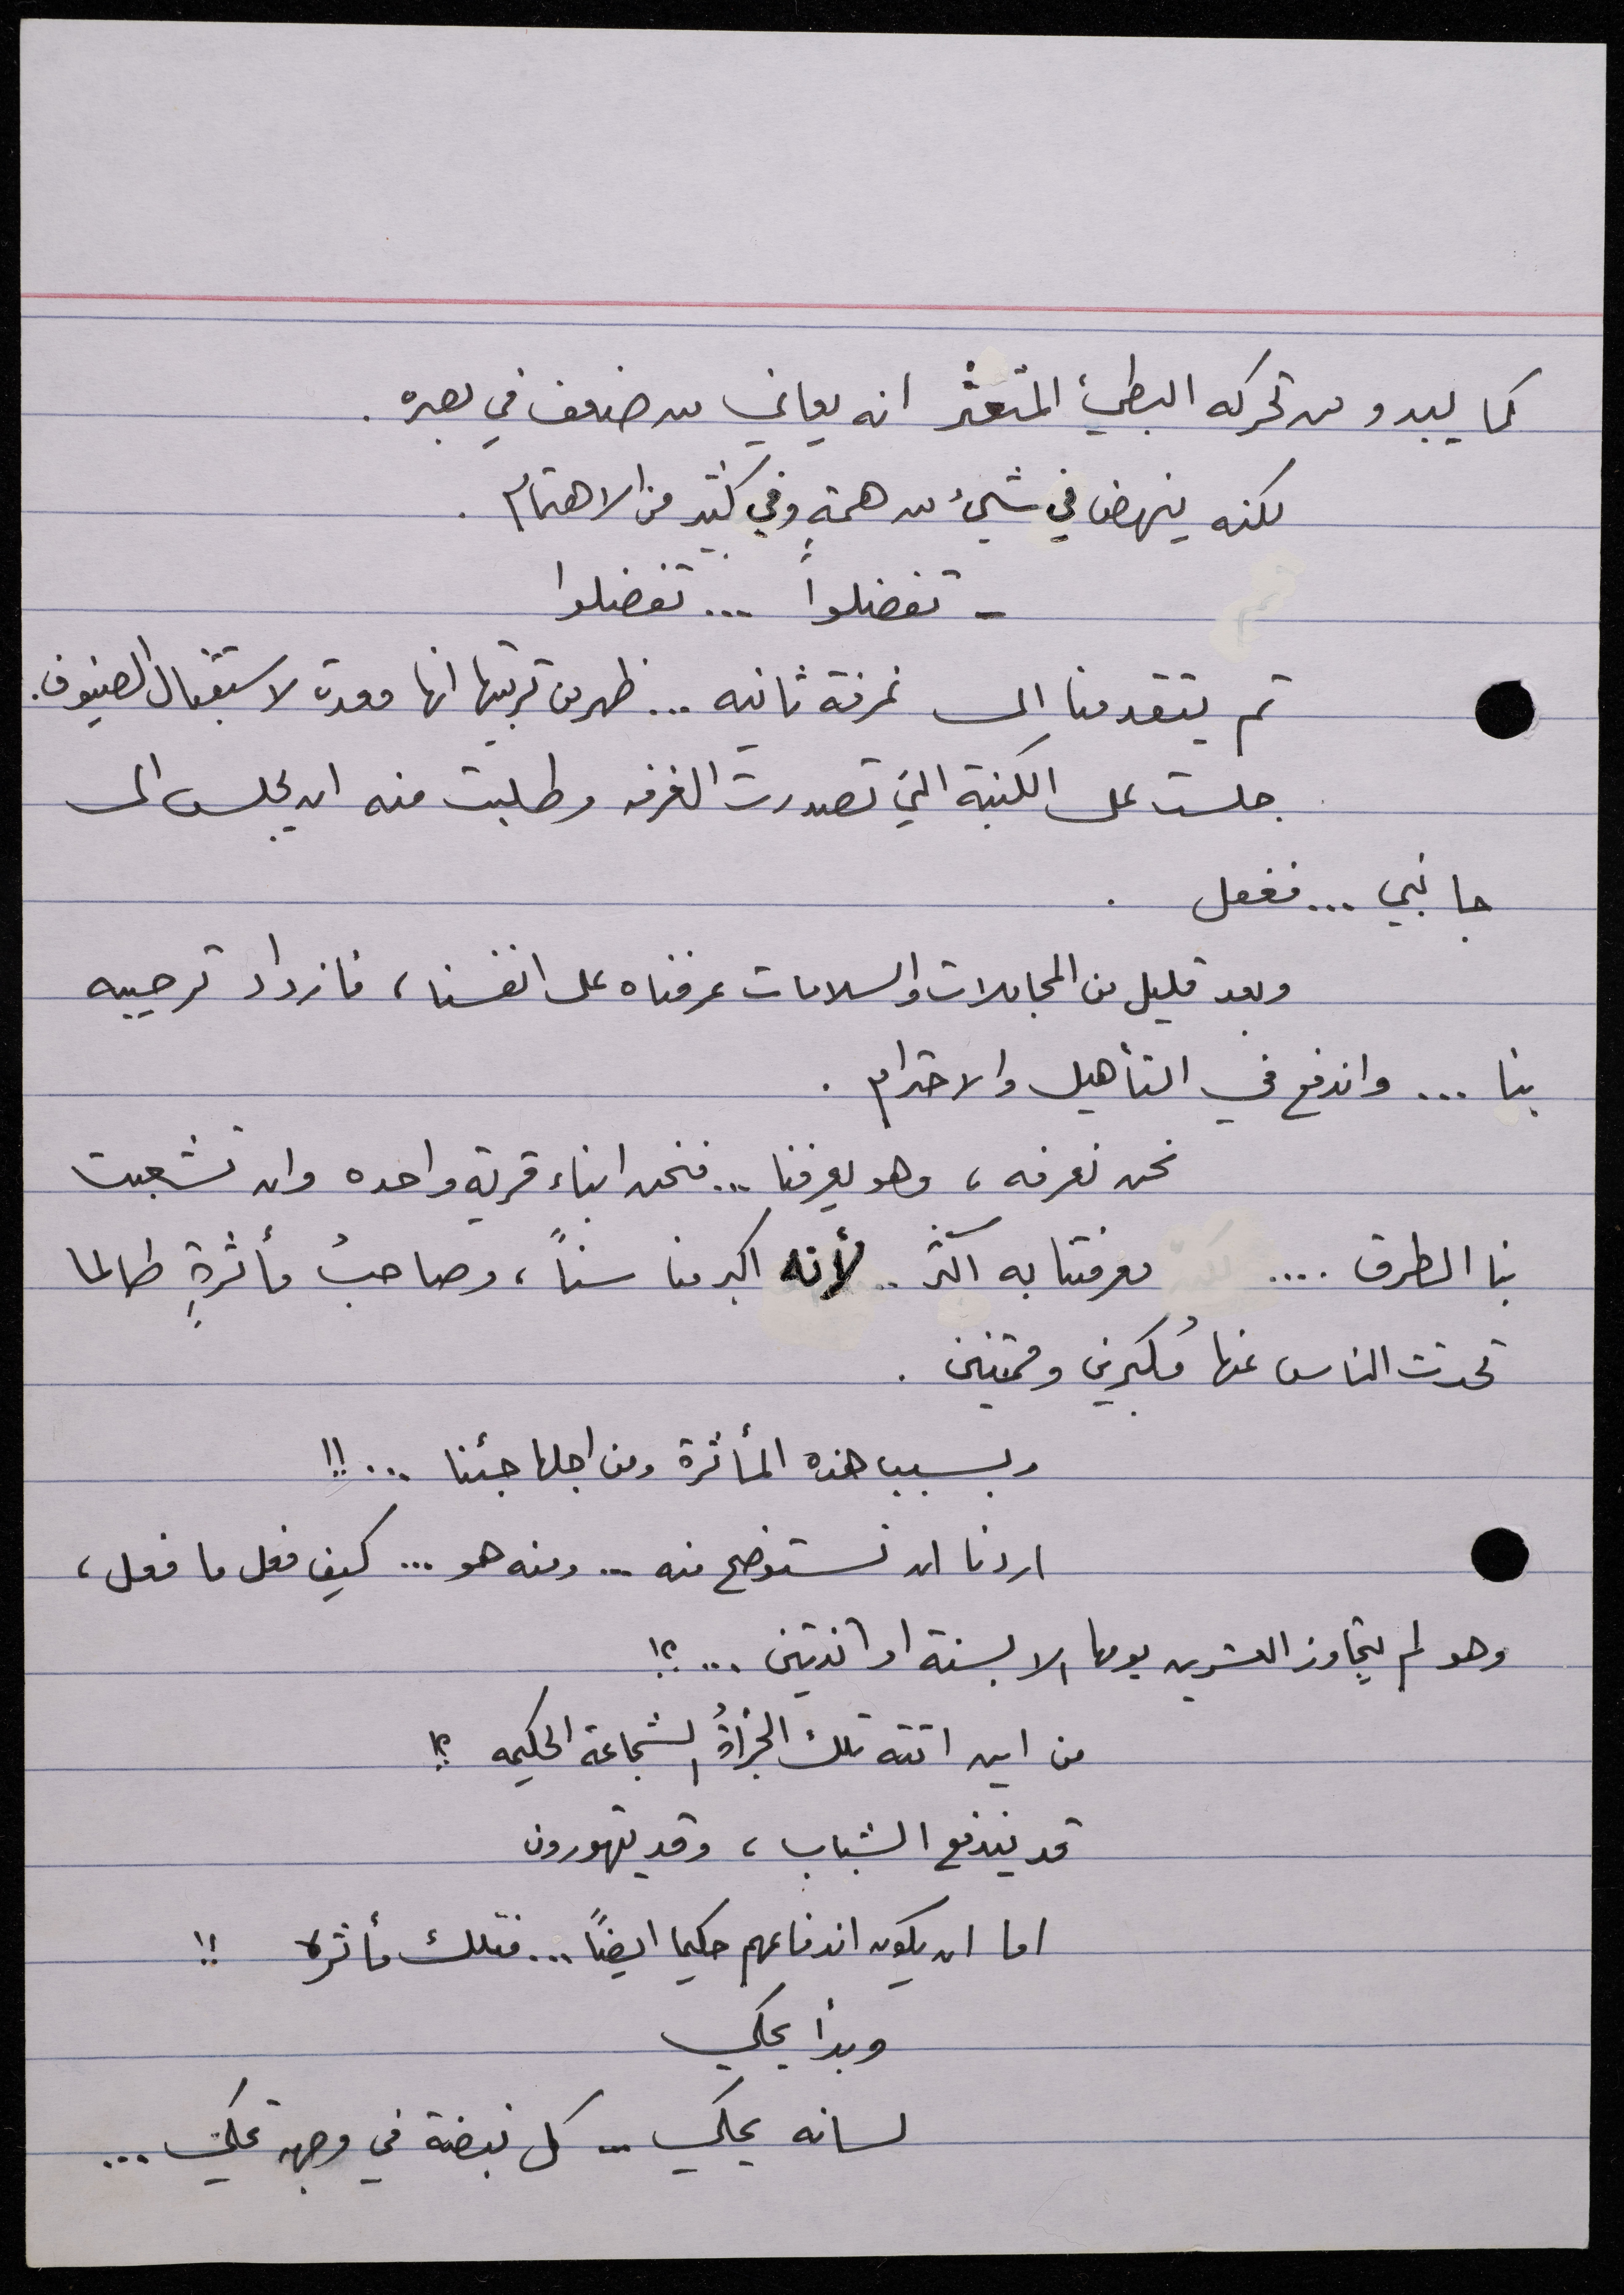 كما يبدو من تحركه البطيئ المتعثر انه يعاني من ضعف في بصره .
لكنه ينهض في شيئ من همةٍ وفي كثير من الاهتمام .
- تفضلوا ... تفضلوا
ثم يتقدمنا الى غرفة ثانيه ... ظهر من ترتيبها انها معدة لاستقبال الضيوف.
جلست على الكنبة التي تصدرت الغرفه وطلبت منه ان يجلس الى
جانبي ... ففعل .
وبعد قليل من المجاملات والسلامات عرفناه على انفسنا ، فازداد ترحيبه
بنا ... واندفع في التأهيل والاحترام .
نحن نعرفه ، وهو يعرفنا ... فنحن ابناء قرية واحده وان تشعبت
بنا الطرق .... معرفتنا به اكثر .. لأنه اكبر منا سناً ، وصاحبُ مأثرةٍ طالما
تحدثت الناس عنها مُكبرين وممتنين .
وبسبب هذه المأثرة ومن اجلها جئنا ... !!
اردنا ان نستوضح منه ... ومنه هو ... كيف فعل ما فعل ،
وهو لم يتجاوز العشرين يومها الا بسنة او اثنتين ... ؟!
من اين اتته تلك الجرأةُ الشجاعة الحكيمه ؟!
قد يندفع الشباب ، وقد يتهورون
اما ان يكون اندفاعهم حكيما ايضاً ... فتلك مأثره !!
وبدأ يحكي
لسانه يحكي ... كل نبضة في وجهه تحكي ...